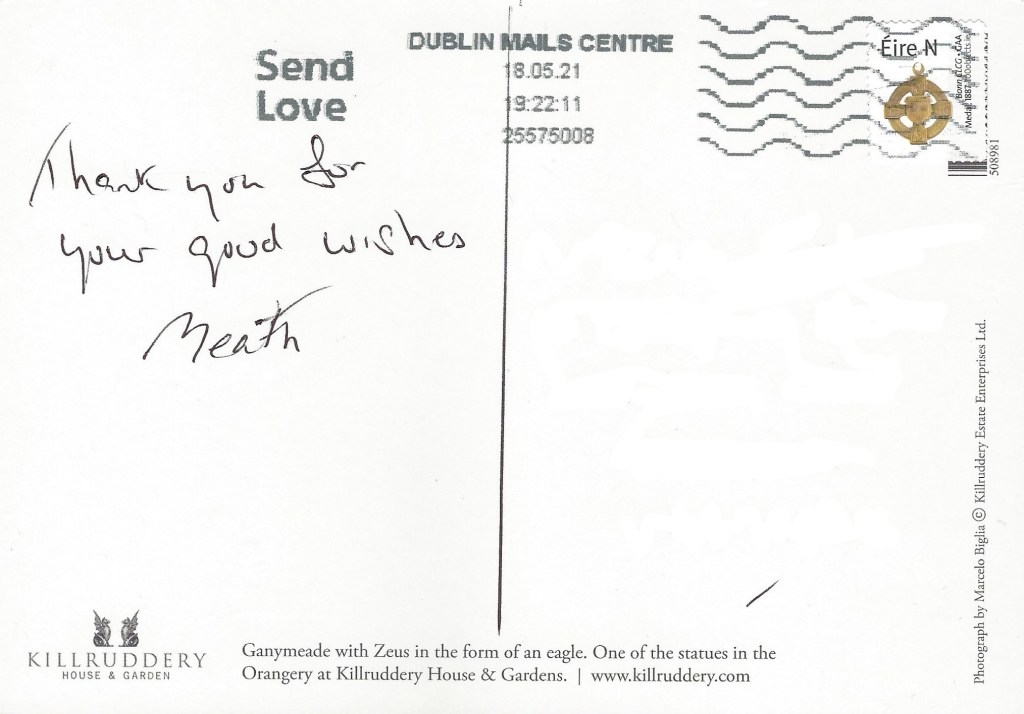 Send
Love
DUBLIN MAILS CENTRE
18.05.21
19:22:11
25575008
Éire N
508981
Thank you for
your good wishes
Meath
KILLRUDDERY
HOUSE & GARDEN
Ganymeade with Zeus in the form of an eagle. One of the statues in the
Orangery at Killruddery House & Gardens. | www.killruddery.com
Photograph by Marcelo Biglia © Killruddery Estate Enterprises Ltd.